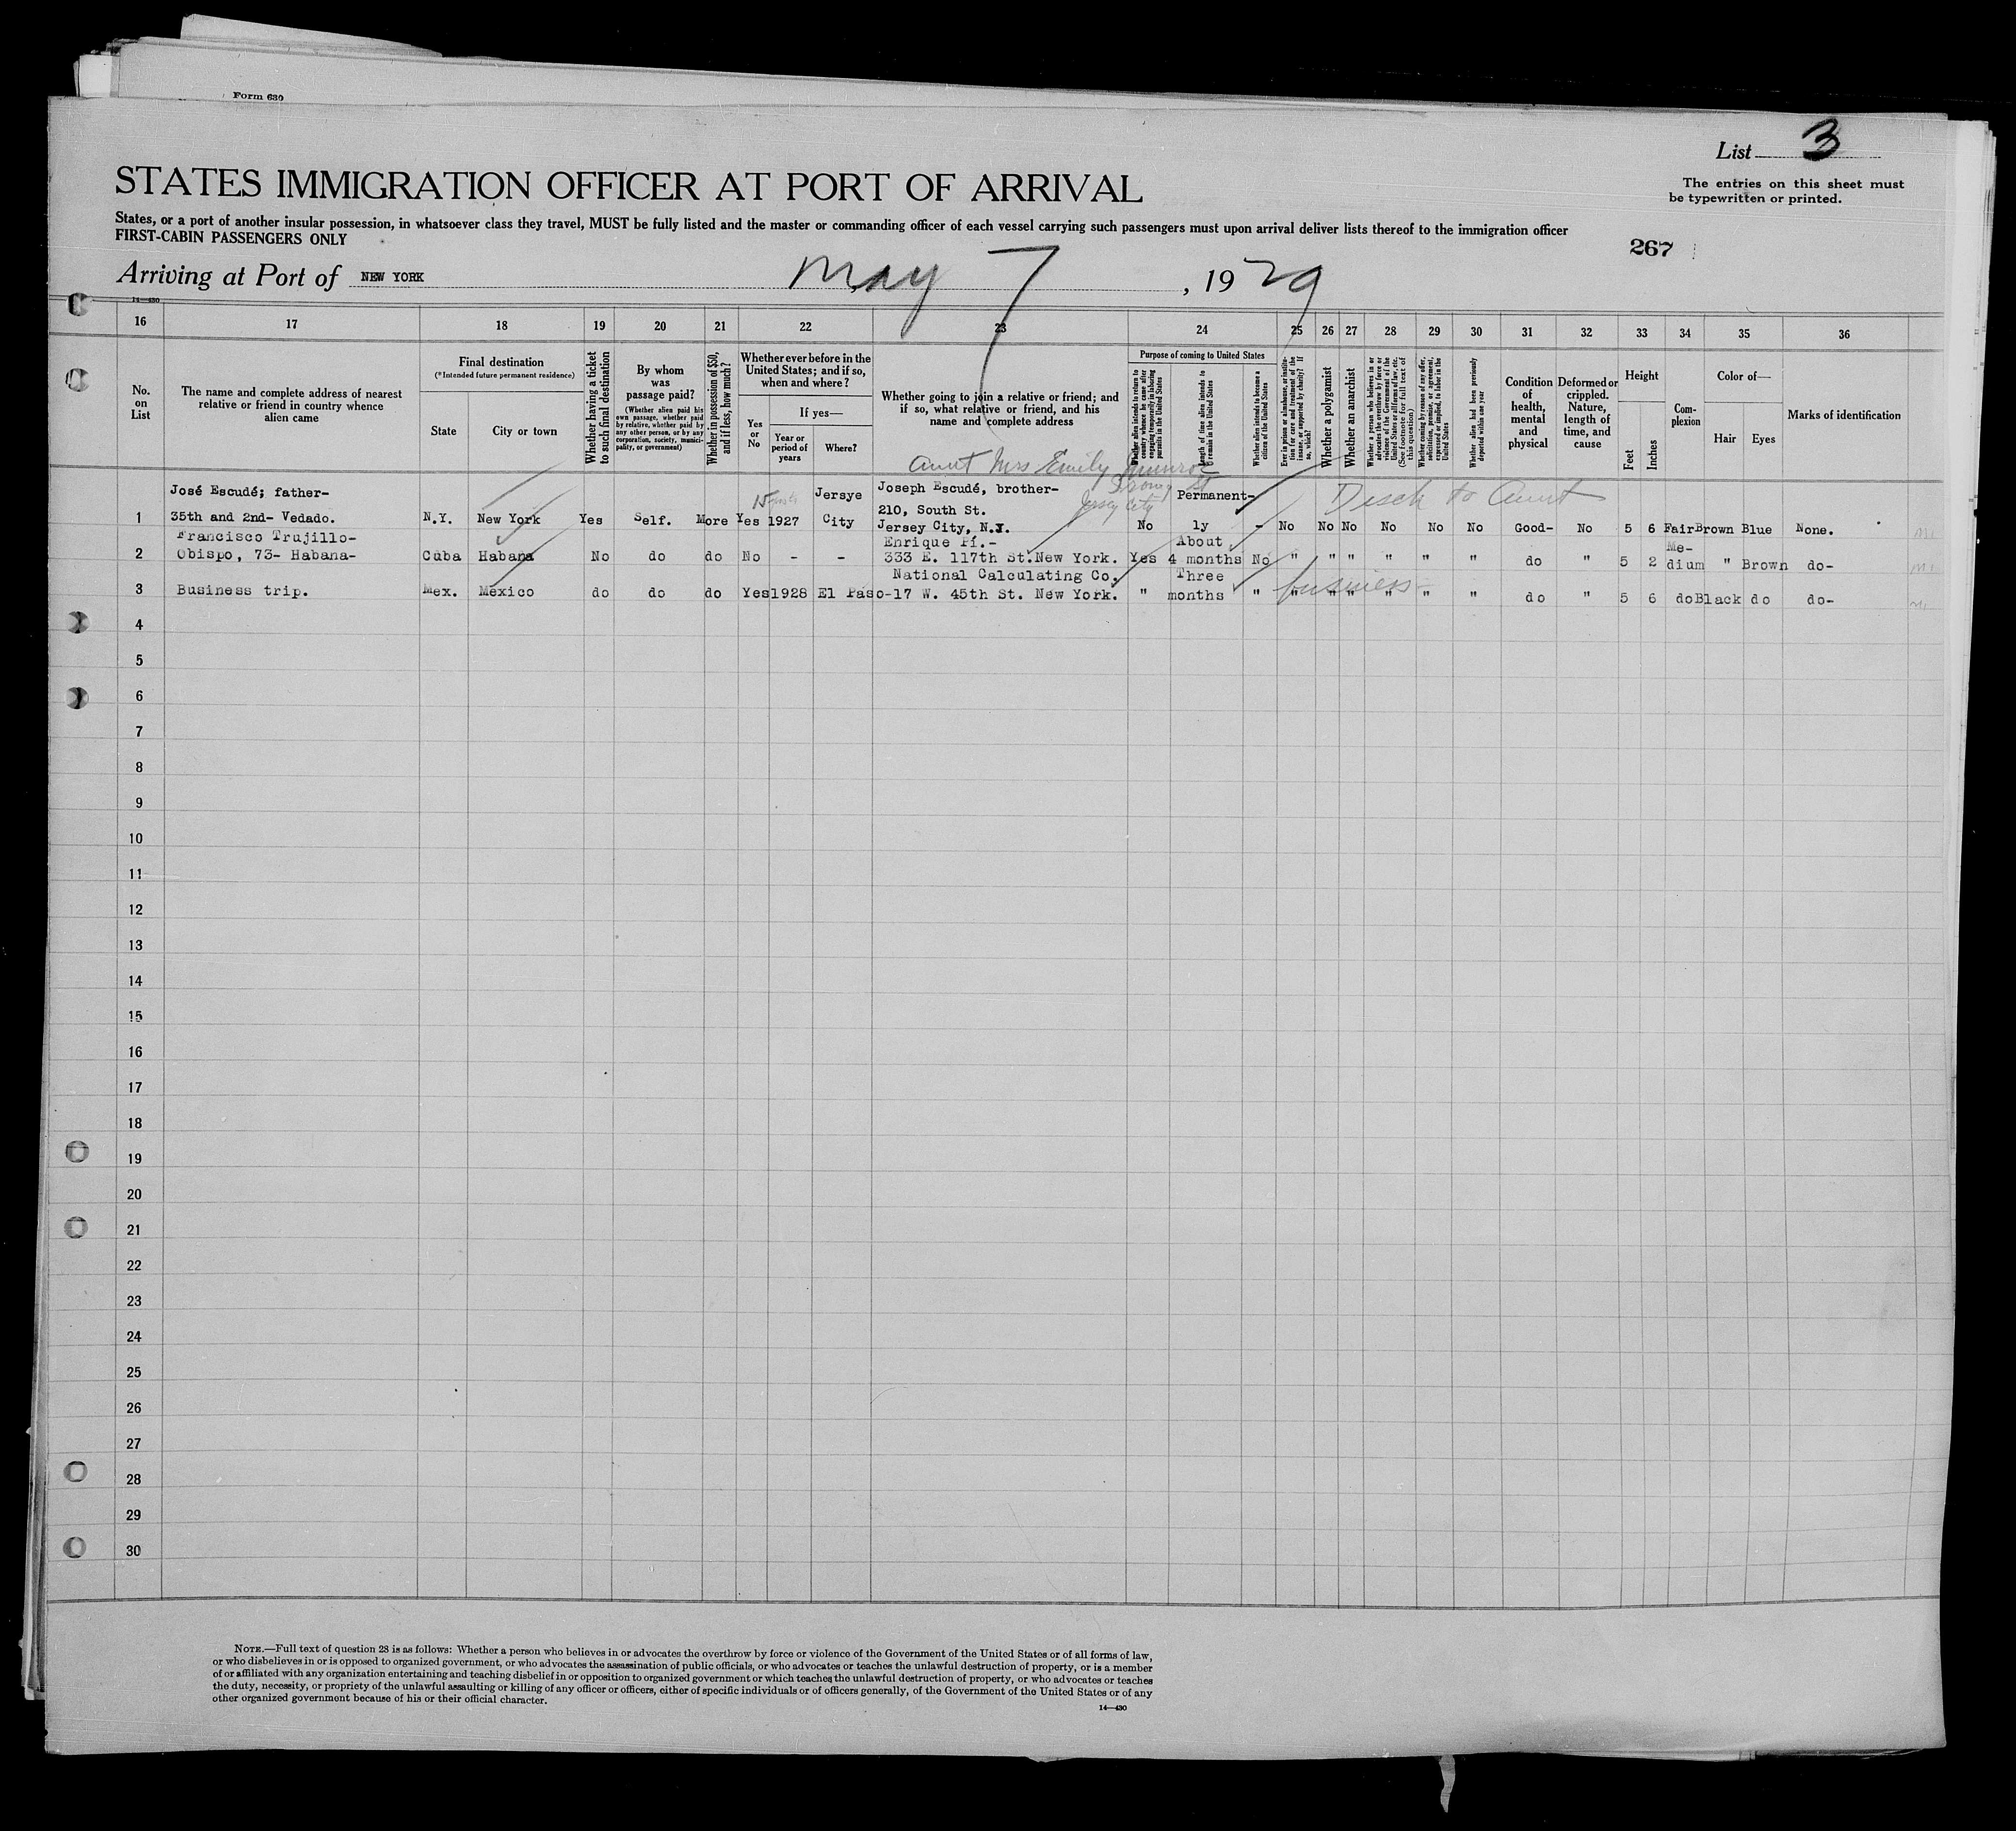 Form 630
List 3
STATES IMMIGRATION OFFICER AT PORT OF ARRIVAL
The entries on this sheet must
be typewritten or printed.
States, or a port of another insular possession, in whatsoever class they travel, MUST be fully listed and the master or commanding officer of each vessel carrying such passengers must upon arrival deliver lists thereof to the immigration officer
FIRST-CABIN PASSENGERS ONLY
267
Arriving at Port of NEW YORK May 7, 1929
14—430
16 17 18 19 20 21 22 23 24 25 26 27 28 29 30 31 32 33 34 35 36
No. on List
The name and complete address of nearest relative or friend in country whence alien came
Final destination
(*Intended future permanent residence)
State
City or town
Whether having a ticket to such final destination
By whom was passage paid?
(Whether alien paid his own passage, whether paid by relative, whether paid by any other person, or by any corporation, society, municipality, or government)
Whether in possession of $50, and if less, how much?
Whether ever before in the United States; and if so, when and where?
Yes or No
If yes—
Year or period of years
Where?
Whether going to join a relative or friend; and if so, what relative or friend, and his name and complete address
Purpose of coming to United States
Whether alien intends to return to country whence he came after engaging temporarily in laboring pursuits in the United States
Length of time alien intends to remain in the United States
Whether alien intends to become a citizen of the United States
Ever in prison or almshouse, or institution for care and treatment of the insane, or supported by charity? If so, which?
Whether a polygamist
Whether an anarchist
Whether a person who believes in or advocates the overthrow by force or violence of the Government of the United States or all forms of law, etc. (See footnote for full text of this question)
Whether coming by reason of any offer, solicitation, promise, or agreement, expressed or implied, to labor in the United States
Whether alien had been previously deported within one year
Condition of health, mental and physical
Deformed or crippled. Nature, length of time, and cause
Height
Feet
Inches
Complexion
Color of—
Hair
Eyes
Marks of identification
Aunt Mrs Emily Munroe
Jersey City
Disch to Aunt
José Escudé; father- Jersye Joseph Escudé, brother- Permanent-
210, South St.
1 35th and 2nd- Vedado. N.Y. New York Yes Self. More Yes 1927 City Jersey City, N.J. No ly - No No No No No No Good- No 5 6 Fair Brown Blue None.
Francisco Trujillo- Enrique Pí.- About Me-
2 Obispo, 73- Habana- Cuba Habana No do do No - - 333 E. 117th St. New York. Yes 4 months No " " " " " " do " 5 2 dium " Brown do-
National Calculating Co. Three business
3 Business trip. Mex. Mexico do do do Yes 1928 El Paso-17 W. 45th St. New York. " months " " " " " " " do " 5 6 do Black do do-
4
5
6
7
8
9
10
11
12
13
14
15
16
17
18
19
20
21
22
23
24
25
26
27
28
29
30
NOTE.—Full text of question 28 is as follows: Whether a person who believes in or advocates the overthrow by force or violence of the Government of the United States or of all forms of law,
or who disbelieves in or is opposed to organized government, or who advocates the assassination of public officials, or who advocates or teaches the unlawful destruction of property, or is a member
of or affiliated with any organization entertaining and teaching disbelief in or opposition to organized government or which teaches the unlawful destruction of property, or who advocates or teaches
the duty, necessity, or propriety of the unlawful assaulting or killing of any officer or officers, either of specific individuals or of officers generally, of the Government of the United States or of any
other organized government because of his or their official character.
14—430